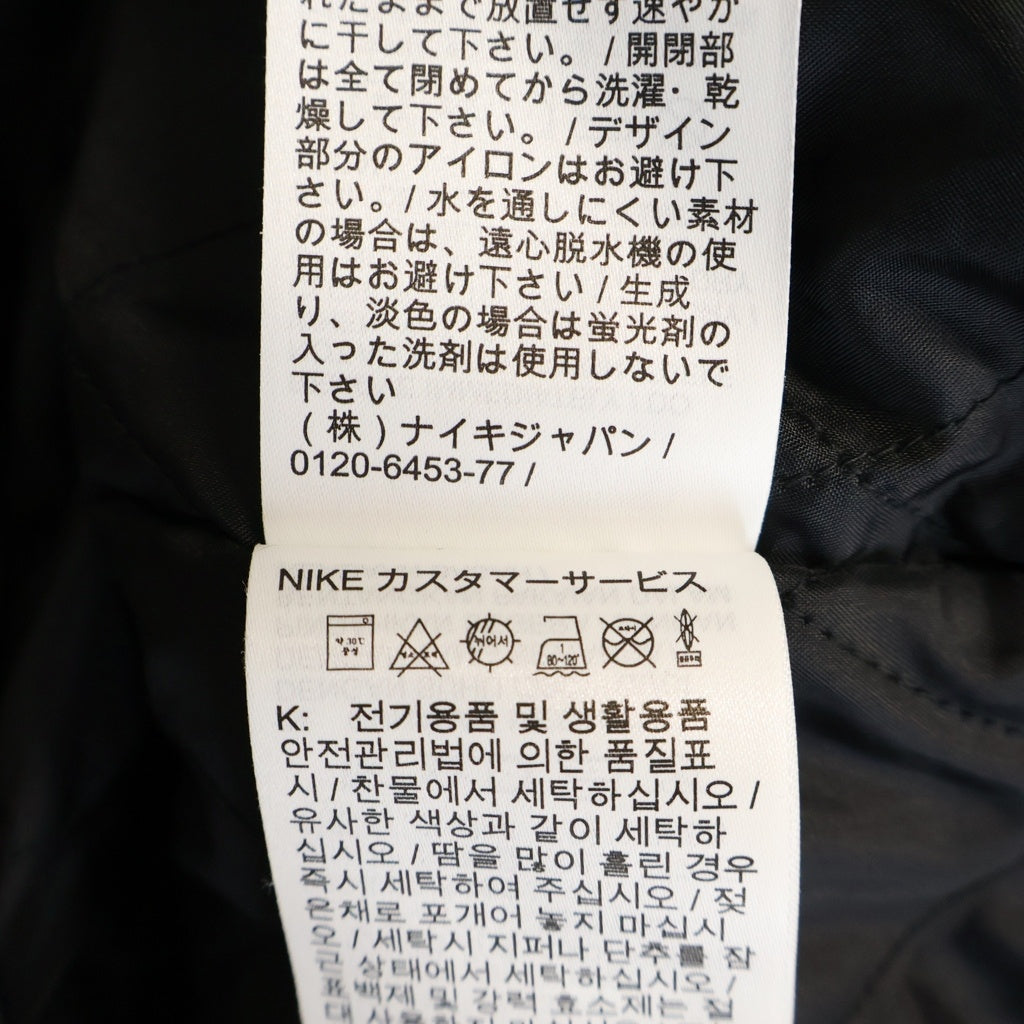 れたままで放置せず速やか
に干して下さい。 / 開閉部
は全て閉めてから洗濯・乾
燥して下さい。 / デザイン
部分のアイロンはお避け下
さい。/ 水を通しにくい素材
の場合は、遠心脱水機の使
用はお避け下さい / 生成
り、淡色の場合は蛍光剤の
入った洗剤は使用しないで
下さい
(株) ナイキジャパン /
0120-6453-77 /
NIKE カスタマーサービス
약 30℃
중성
뉘어서
1
80~120°
K: 전기용품 및 생활용품
안전관리법에 의한 품질표
시 / 찬물에서 세탁하십시오 /
유사한 색상과 같이 세탁하
십시오 / 땀을 많이 흘린 경우
즉시 세탁하여 주십시오 / 젖
은채로 포개어 놓지 마십시
오 / 세탁시 지퍼나 단추를 잠
근 상태에서 세탁하십시오 /
표백제 및 강력 효소제는 절
대 사용하지 마십시오